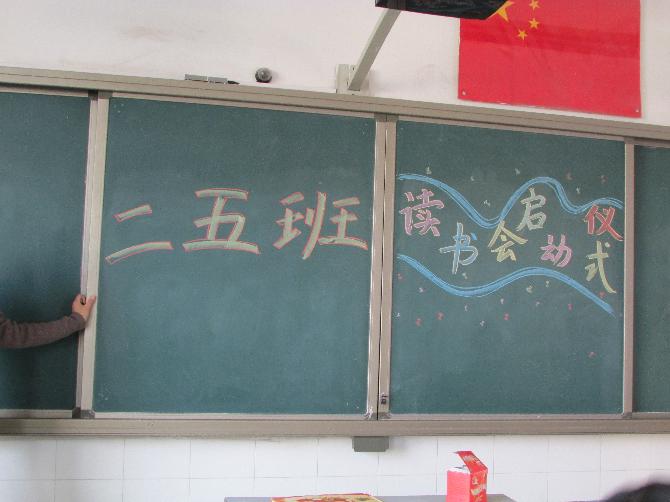 二五班
读书会启动仪式